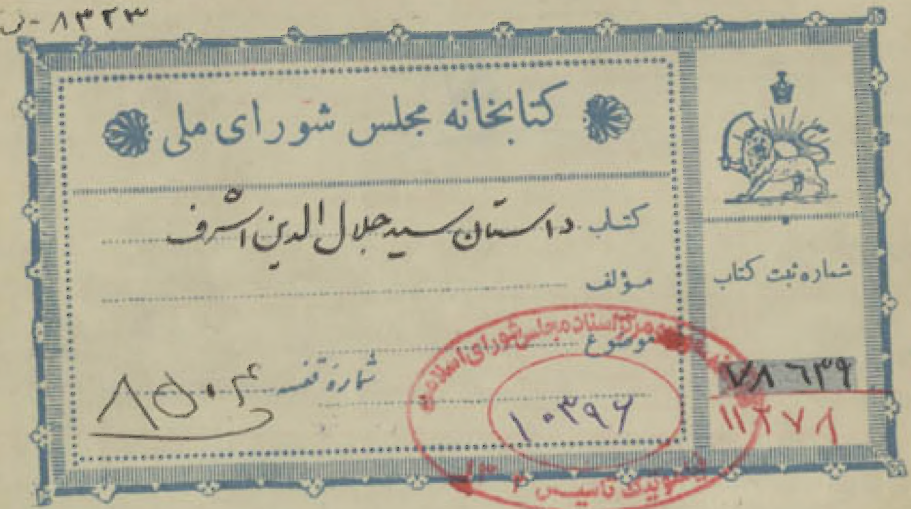 ن - ۸۳۲۳
کتابخانه مجلس شورای ملی
کتاب داستان سید جلال الدین اشرف
مؤلف
موضوع
شماره قفسه ۸۵۰۴
شماره ثبت کتاب
۷۸۶۳۹
۱۱۲۷۸
مرکز اسناد مجلس شورای اسلامی
۱۰۳۹۶
تاسیس